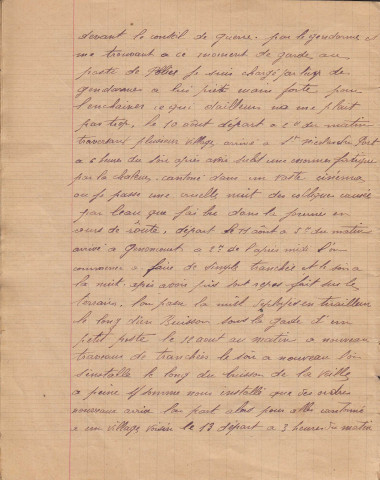 devant le conseil de guerre. par le gendarme et
me trouvant a ce moment de garde au
poste de Police je suis chargé par
gendarme a lui prêté main forte pour
l'enchainer ce qui d'ailleurs ne me plait
pas trop, le 10 août départ a 2h du matin
traversons plusieurs village arrivé a St Nicolas du Port
a 6 heures du soir après avoir subit une énorme fatigue
par la chaleur, cantoné dans un vaste cinéma
ou je passe une cruelle nuit des coliques causée
par l'eau que j'ai bu dans le
cours de route, départ le 11 août a 3h du matin
arrivé a a 2h de l'après midi l'on
commence a faire de simple tranchée et le soir a
la nuit, après avoir pris son repos fait sur le
terrain, l'on passe la nuit en tirailleur
le long d'un Buisson sous la garde d'un
petit poste le 12 août au matin a nouveau
travaux de tranchée le soir a nouveau l'on
s'installe le long du buisson de la veille
a peine sommes nous installé que des ordres
nouveaux arrive l'on part alors pour aller cantonné
a un village voisin le 13 départ a 3 heures du matin